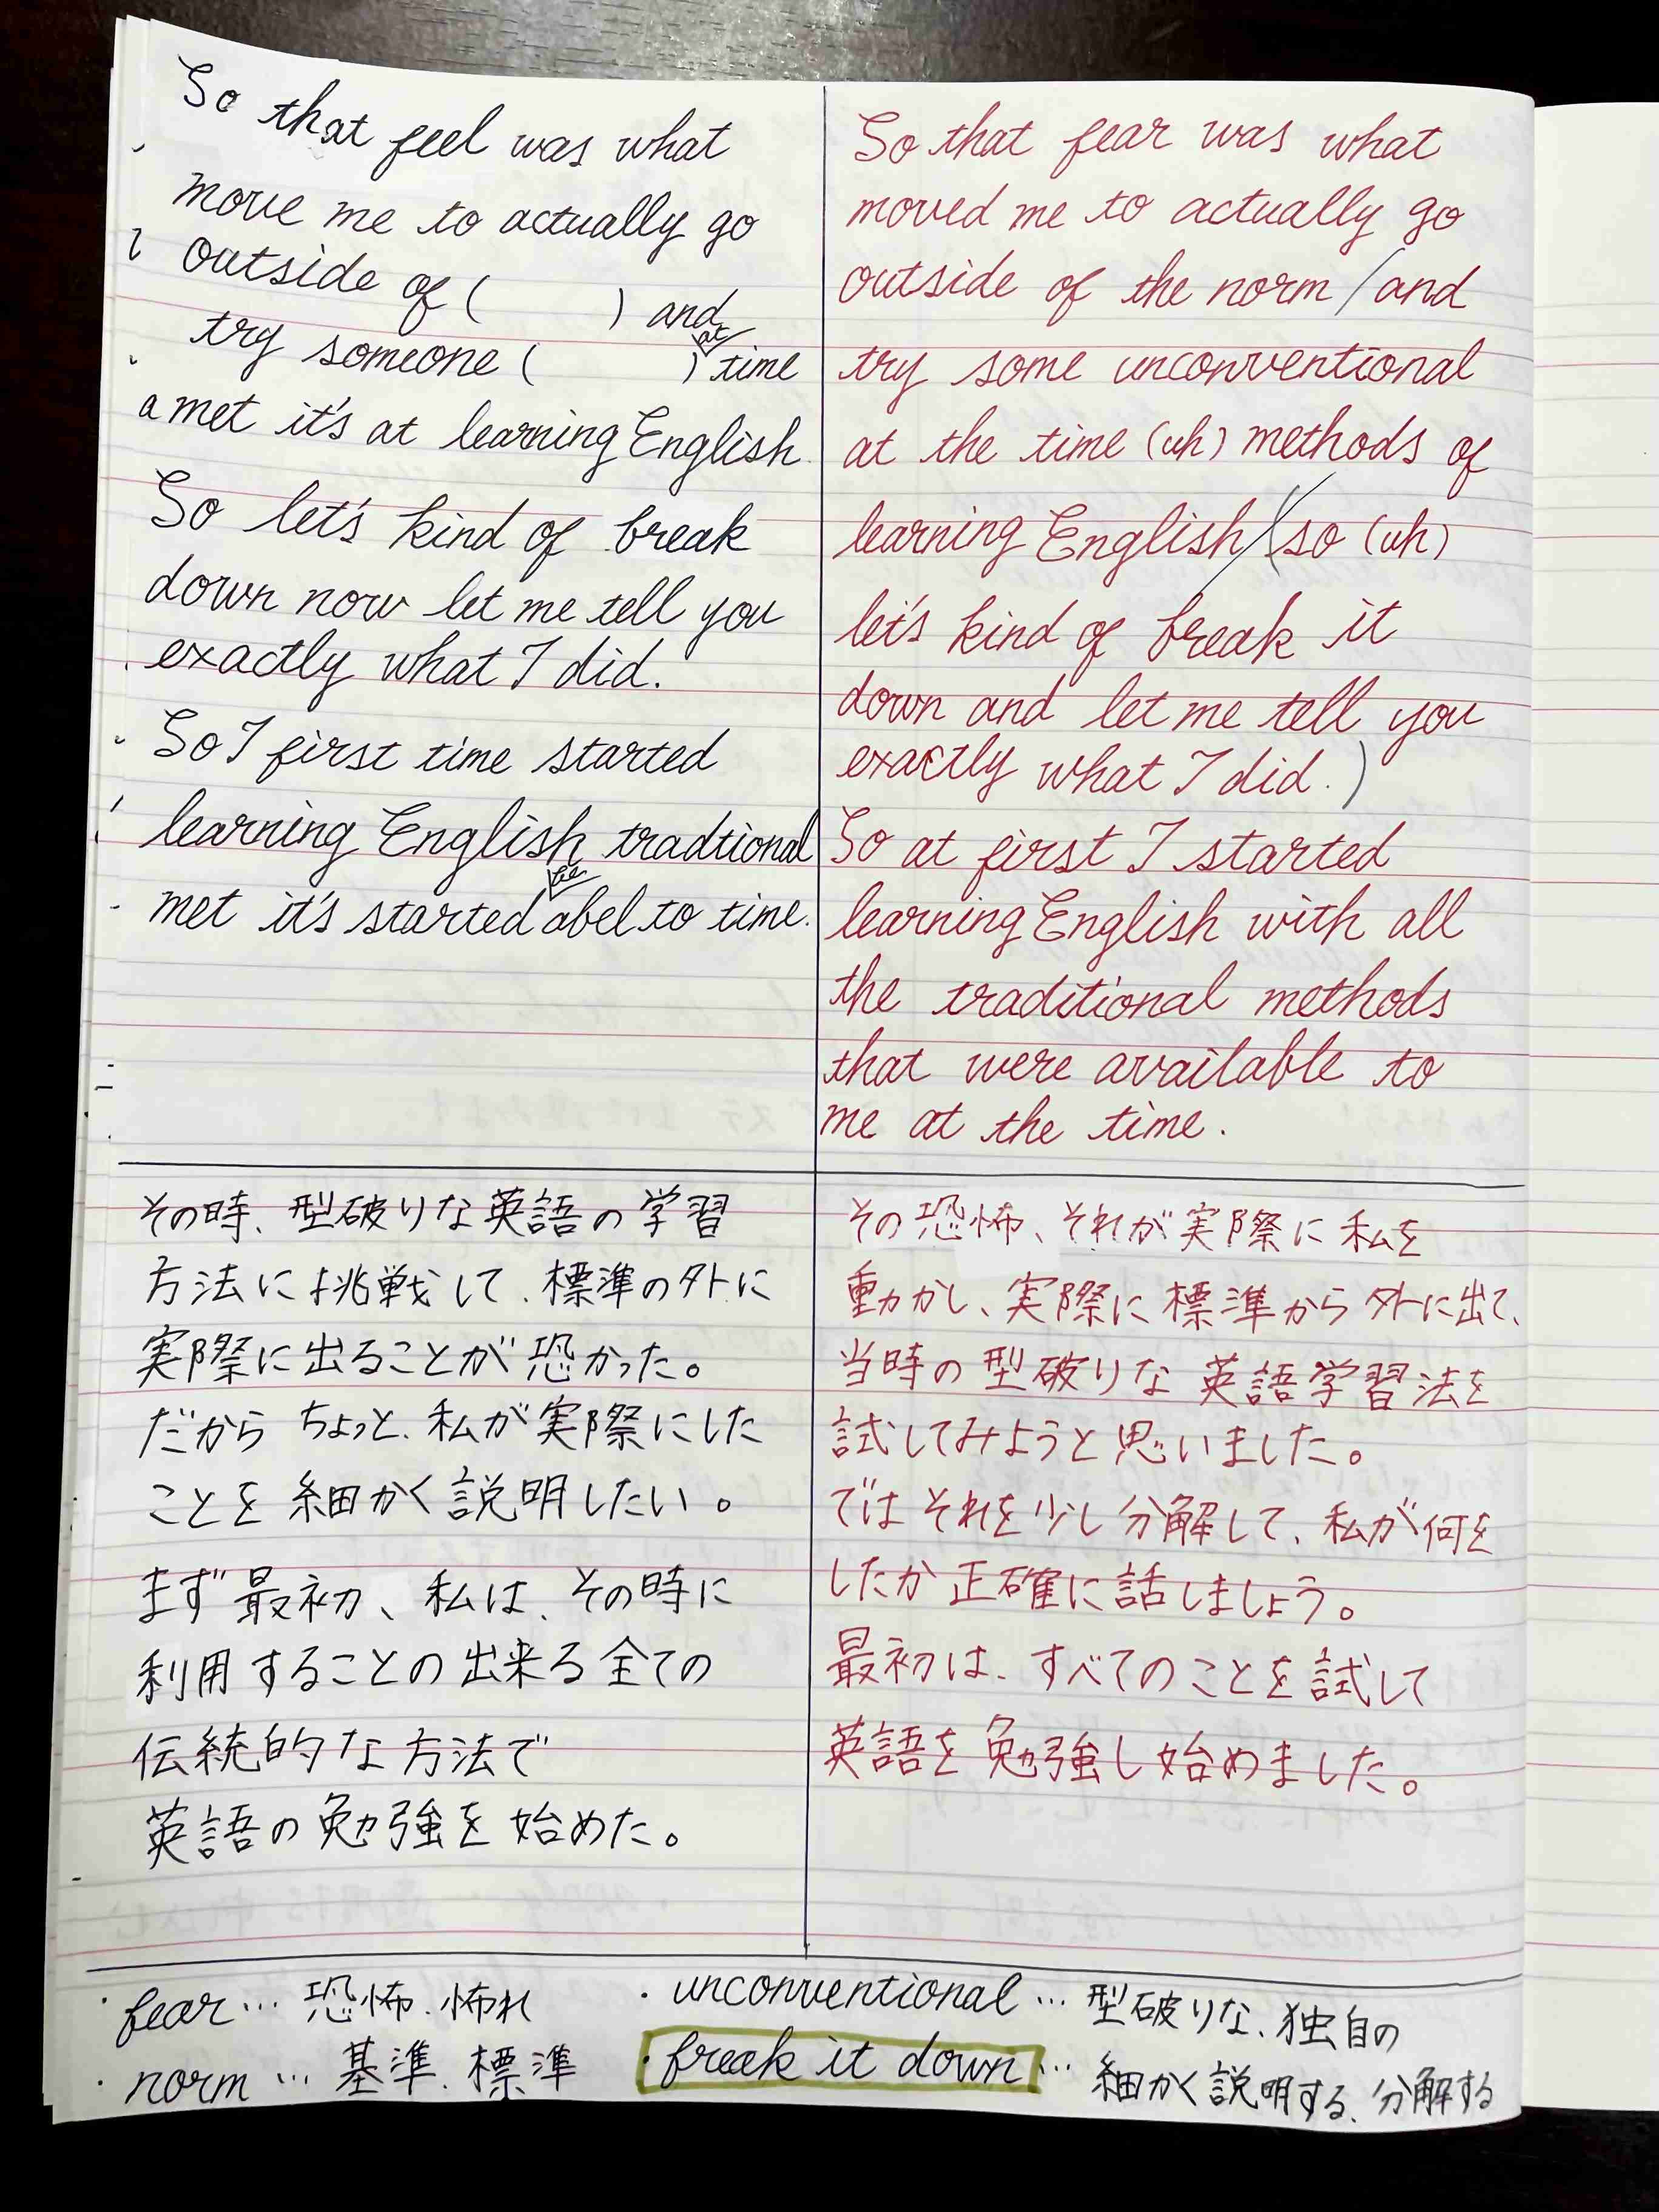 So that feel was what
move me to actually go
outside of (          ) and
try someone (          ) at time
a met it's at learning English.
So let's kind of break
down now let me tell you
exactly what I did.
So I first time started
learning English tradtional
met it's started be abel to time.
So that fear was what
moved me to actually go
outside of the norm / and
try some unconventional
at the time (uh) methods of
learning English / (so (uh)
let's kind of break it
down and let me tell you
exactly what I did.)
So at first I started
learning English with all
the traditional methods
that were available to
me at the time.
その時、型破りな英語の学習
方法に挑戦して、標準の外に
実際に出ることが恐かった。
だから ちょっと、私が実際にした
ことを 細かく説明したい。
まず最初、私は、その時に
利用することの出来る全ての
伝統的な方法で
英語の勉強を始めた。
その恐怖、それが実際に私を
動かし、実際に標準から外に出て、
当時の型破りな英語学習法を
試してみようと思いました。
ではそれを少し分解して、私が何を
したか正確に話しましょう。
最初は、すべてのことを試して
英語を勉強し始めました。
・fear… 恐怖、怖れ
・norm … 基準、標準
・unconventional … 型破りな、独自の
・break it down … 細かく説明する、分解する